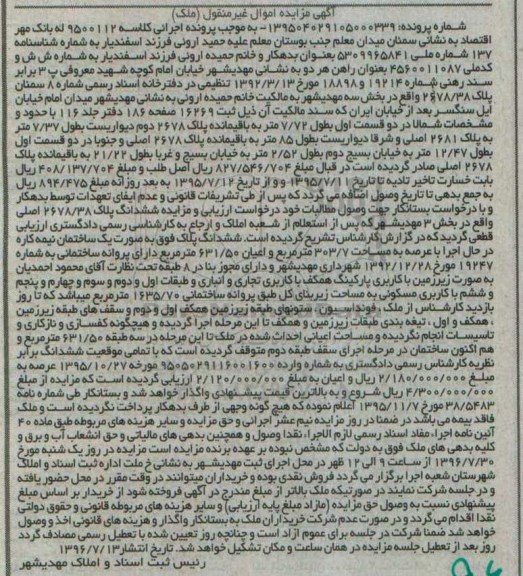 آگهی مزایده اموال غیرمنقول (ملک)
شماره پرونده: ۱۳۹۵۰۴۰۲۹۱۰۵۰۰۰۳۳۹- به موجب پرونده اجرائی کلاسه ۹۵۰۰۱۱۲ له بانک مهر
اقتصاد به نشانی سمنان میدان معلم جنب بوستان معلم علیه حمید ارونی فرزند اسفندیار به شماره شناسنامه
۱۳۷ شماره ملی ۵۳۰۹۹۶۵۸۴۱ بعنوان بدهکار و خانم حمیده ارونی فرزند اسفندیار به شماره ش ش و
کدملی ۴۵۶۰۰۱۱۰۸۷ بعنوان راهن هر دو به نشانی مهدیشهر خیابان امام کوچه شهید معروفی پ ۳ برابر
سند رهنی شماره ۱۹۲۱۴ و ۱۸۸۹۸ مورخ ۱۳۹۲/۳/۱۳ تنظیمی در دفترخانه اسناد رسمی شماره ۸ سمنان
پلاک ۲۶۷۸/۳۸ واقع در بخش سه مهدیشهر به مالکیت خانم حمیده ارونی به نشانی مهدیشهر میدان امام خیابان
آیل سنگسر بعد از خیابان ایران که سند مالکیت آن ذیل ثبت ۱۶۲۶۹ صفحه ۱۸۶ دفتر جلد ۱۱۶ با حدود و
مشخصات شمالا در دو قسمت اول بطول ۷/۷۲ متر به باقیمانده پلاک ۲۶۷۸ دوم دیواریست بطول ۷/۳۷ متر
به پلاک ۲۶۸۱ اصلی و شرقا دیواریست بطول ۸۵ متر به باقیمانده پلاک ۲۶۷۸ اصلی و جنوبا در دو قسمت اول
بطول ۱۲/۴۷ متر به خیابان بسیج دوم بطول ۲/۵۲ متر به خیابان بسیج و غربا بطول ۲۱/۲۲ به باقیمانده پلاک
۲۶۷۸ اصلی صادر گردیده است در قبال مبلغ ۸۲۷/۵۴۶/۷۰۴ ریال اصل طلب و مبلغ ۴۰۸/۱۳۷/۷۰۴ ریال
بابت خسارت تاخیر تادیه تا تاریخ ۱۳۹۵/۷/۱۱ و و از تاریخ ۱۳۹۵/۷/۱۲ به بعد روزانه مبلغ ۸۹۴/۴۷۵ ریال
به جمع بدهی تا تاریخ وصول اضافه می گردد که پس از طی تشریفات قانونی و عدم ایفای تعهدات توسط بدهکار
و با درخواست بستانکار جهت وصول مطالبات خود درخواست ارزیابی و مزایده ششدانگ پلاک ۲۶۷۸/۳۸ اصلی
واقع در بخش ۳ مهدیشهر که پس از استعلام از شعبه املاک و ارجاع به کارشناسی رسمی دادگستری ارزیابی
قطعی گردید که در گزارش کارشناس تشریح گردیده است. ششدانگ پلاک فوق به صورت یک ساختمان نیمه کاره
در حال اجرا با عرصه به مساحت ۳۰۳/۷ مترمربع و اعیان ۶۳۱/۵۰ مترمربع دارای پروانه ساختمانی به شماره
۱۹۲۴۷ مورخ ۱۳۹۲/۱۲/۲۸ شهرداری مهدیشهر و دارای مجوز بنا در ۸ طبقه تحت نظارت آقای محمود احمدیان
به صورت زیرزمین با کاربری پارکینگ همکف با کاربری تجاری و انباری و طبقات اول و دوم و سوم و چهارم و پنجم
و ششم با کاربری مسکونی به مساحت زیربنای کل طبق پروانه ساختمانی ۱۶۳۵/۷۰ مترمربع میباشد که تا روز
بازدید کارشناس از ملک ، فونداسیون ستونهای طبقه زیرزمین همکف اول و دوم و سقف های طبقه زیرزمین
، همکف و اول ، تیغه بندی طبقات زیرزمین و همکف تا این مرحله اجرا گردیده و هیچگونه کفسازی و نازکاری و
تاسیسات انجام نگردیده و مساحت اعیانی احداث شده در ملک تا این مرحله در سه طبقه ۶۳۱/۵۰ مترمربع و
هم اکنون ساختمان در مرحله اجرای سقف طبقه دوم متوقف گردیده است که با تمامی موقعیت ششدانگ برابر
نظریه کارشناس رسمی دادگستری به شماره وارده ۹۵۰۵۰۲۹۱۱۶۰۰۱۶۰۰ مورخه ۱۳۹۵/۱۰/۲۷ عرصه به
مبلغ ۲/۱۸۰/۰۰۰/۰۰۰ ریال و اعیان به مبلغ ۲/۱۲۰/۰۰۰/۰۰۰ ارزیابی گردیده است که مزایده از مبلغ
۴/۳۰۰/۰۰۰/۰۰۰ ریال شروع و به بالاترین قیمت پیشنهادی واگذار خواهد شد و بستانکار طی شماره نامه
۳۸/۵۴۸۳ مورخ ۱۳۹۵/۱۱/۷ اعلام نموده که هیچ گونه وجهی از طرف بدهکار پرداخت نگردیده است و ملک
فاقد بیمه می باشد در ضمنا در روز مزایده نیم عشر اجرائی و حق مزایده و سایر هزینه های مربوطه طبق ماده ۴۰
آئین نامه اجرا، مفاد اسناد رسمی لازم الاجرا، نقدا وصول و همچنین بدهی های مالیاتی و حق انشعاب آب و برق و
کلیه بدهی های ملک فوق به دولت که مشخص نبوده بر عهده برنده مزایده است مزایده در روز یک شنبه مورخ
۱۳۹۶/۷/۳۰ از ساعت ۹ الی ۱۲ ظهر در محل اجرای ثبت مهدیشهر به نشانی خ ملت اداره ثبت اسناد و املاک
شهرستان شعبه اجرا برگزار می گردد فروش نقدی بوده و خریداران میتوانند در وقت مقرر در محل حضور یافته
و در جلسه شرکت نمایند در صورتیکه ملک بالاتر از مبلغ مندرج در آگهی فروخته شود از خریدار بر اساس مبلغ
پیشنهادی نسبت به وصول حق مزایده (مازاد مبلغ پایه ارزیابی) و سایر هزینه های مربوطه قانونی و حقوق دولتی
نقدا اقدام می گردد و در صورت عدم شرکت خریداران ملک به بستانکار واگذار و هزینه های قانونی اخذ و وصول
خواهد شد ضمنا شرکت در جلسه برای عموم ازاد است و چنانچه روز تعیین شده با تعطیل رسمی مصادف گردد
روز بعد از تعطیل جلسه مزایده در همان ساعت و مکان تشکیل خواهد شد. تاریخ انتشار: ۱۳۹۶/۷/۱۳
رئیس ثبت اسناد و املاک مهدیشهر